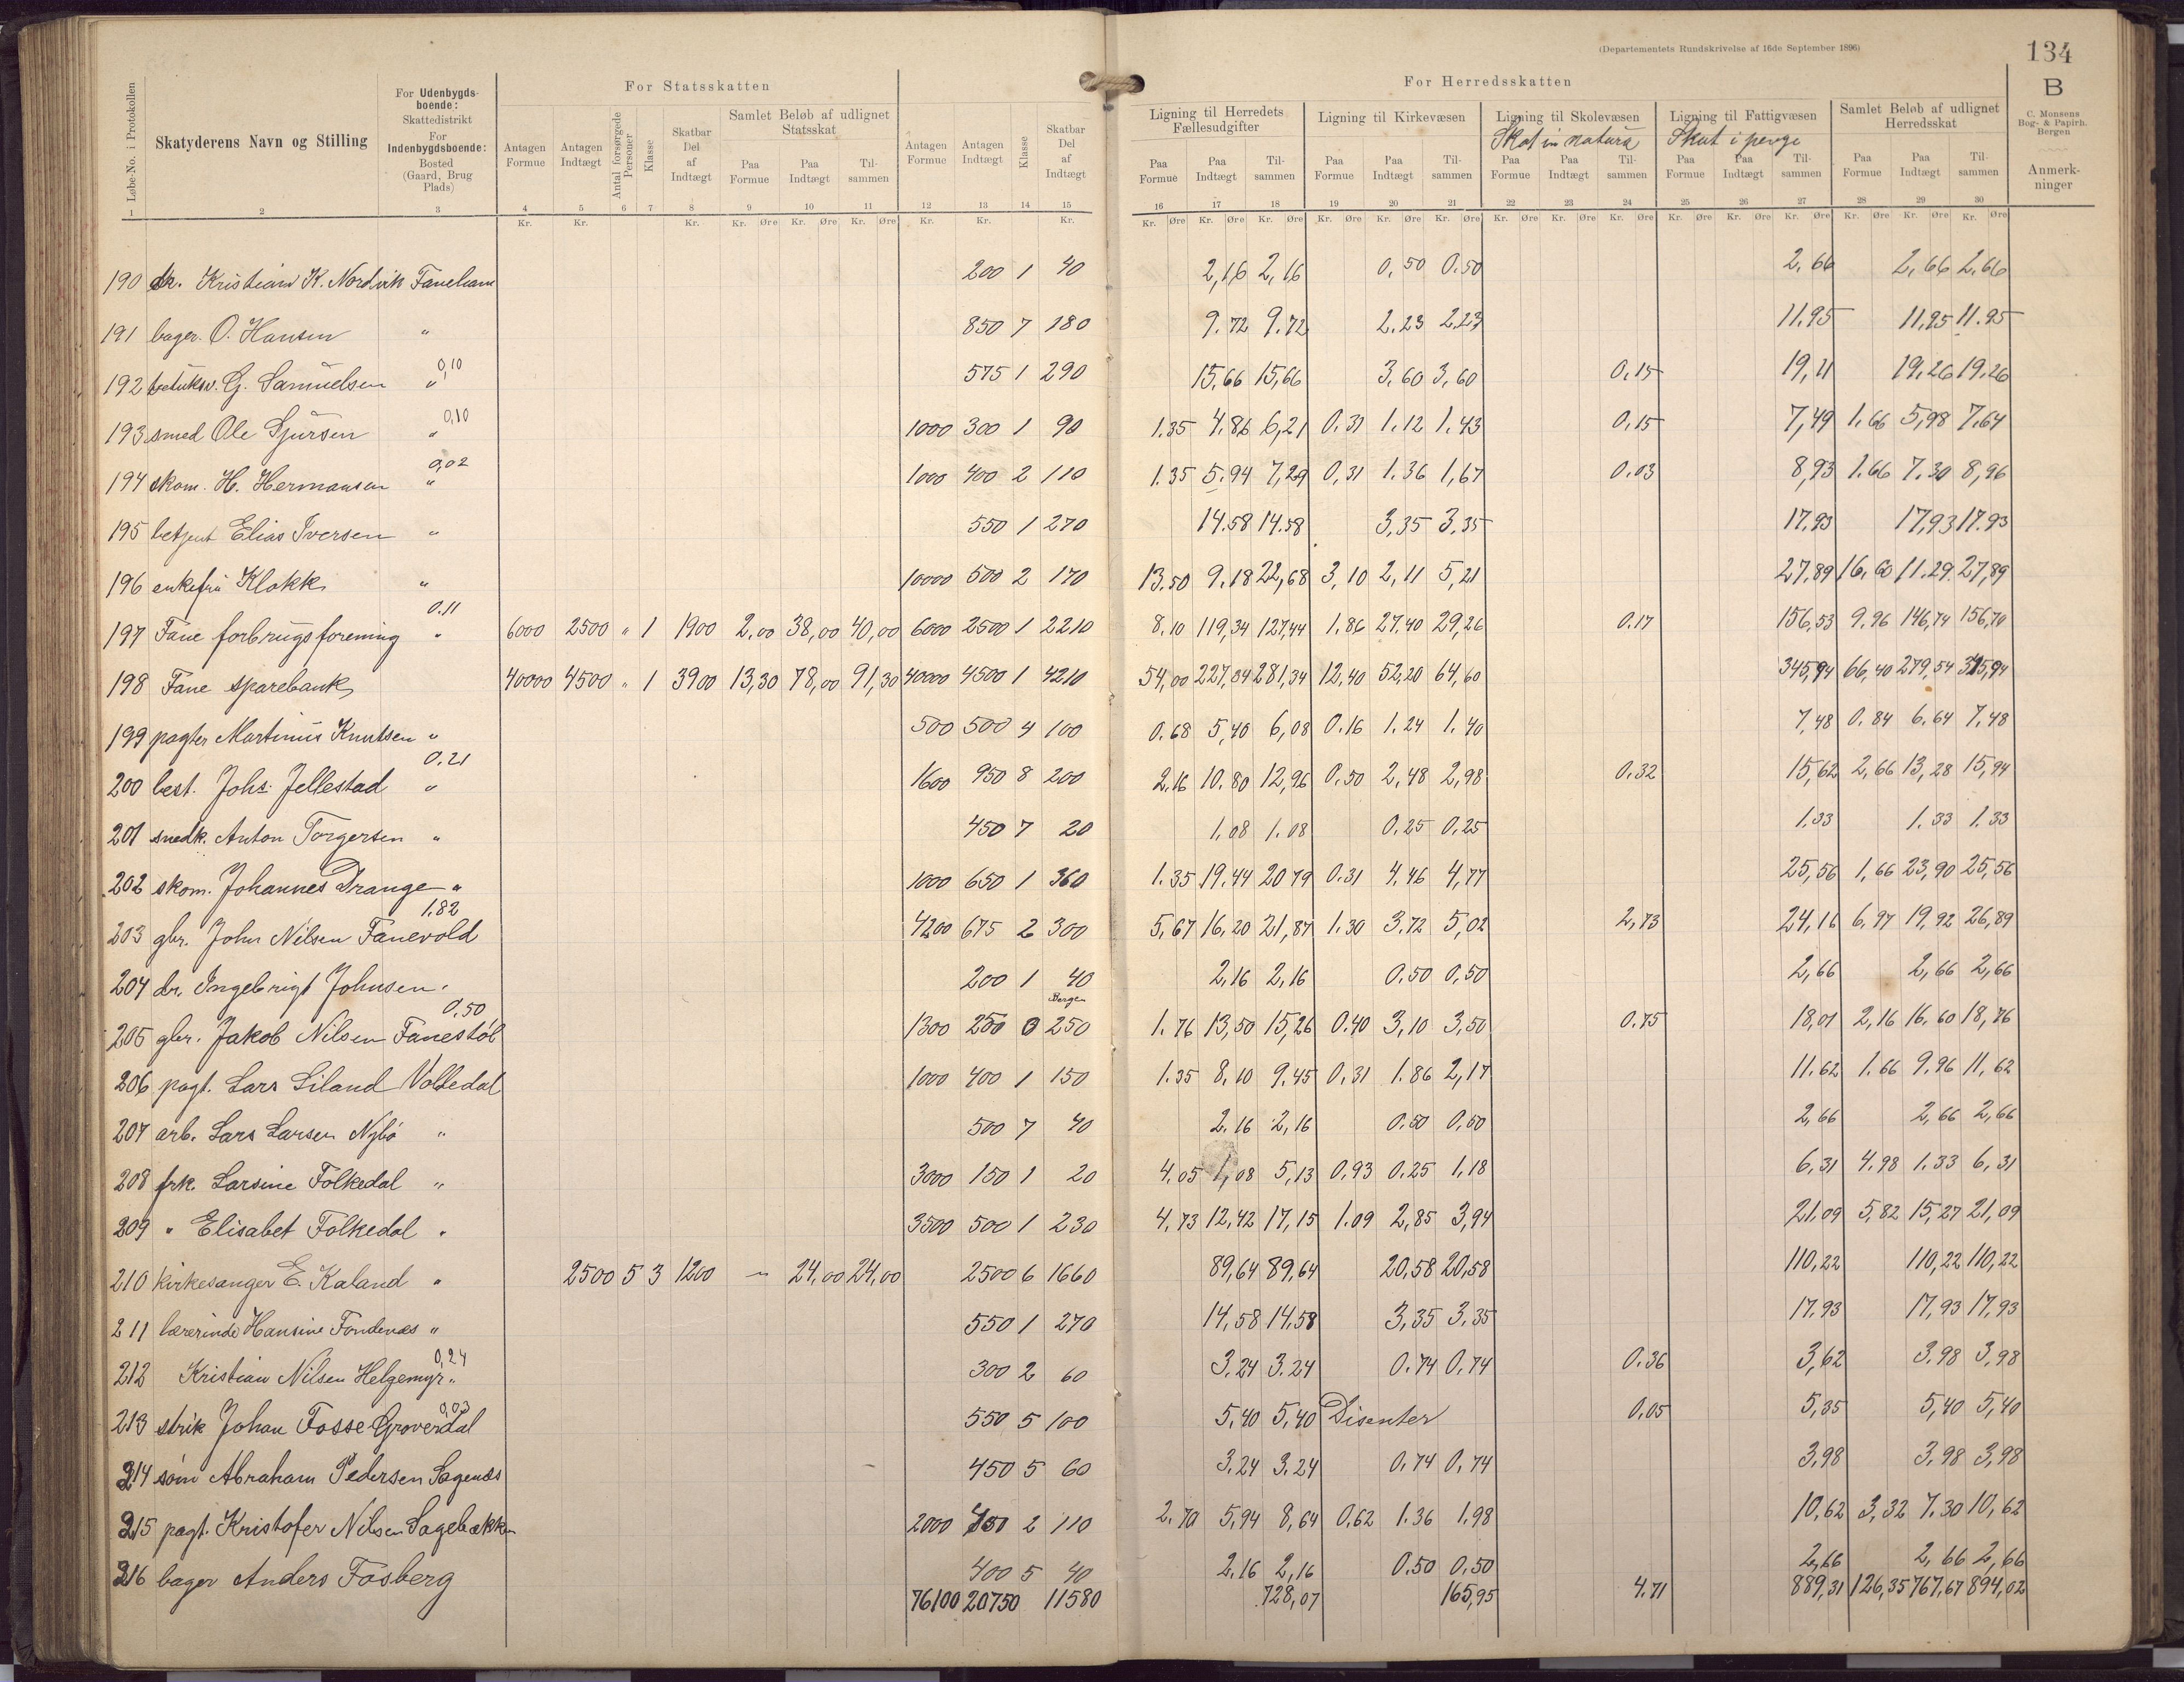 (Departementets Rundskrivelse af 16de September 1896)
134
B
C. Monsens
Bog- & Papirh.
Bergen
Anmerk-
ninger
Løbe-No. i Protokollen
Skatyderens Navn og Stilling
For Udenbygds-
boende:
Skattedistrikt
For
Indenbygdsboende:
Bosted
(Gaard, Brug
Plads)
For Statsskatten
Antagen Formue
Antagen Indtægt
Antal forsørgede Personer
Klasse
Skatbar Del af Indtægt
Samlet Beløb af udlignet Statsskat
Paa Formue
Paa Indtægt
Til- sammen
Antagen Formue
Antagen Indtægt
Klasse
Skatbar Del af Indtægt
For Herredsskatten
Ligning til Herredets Fællesudgifter
Ligning til Kirkevæsen
Ligning til Skolevæsen
Skat in natura
Ligning til Fattigvæsen
Skat i penge
Samlet Beløb af udlignet Herredsskat
Paa Formue Paa Indtægt Til- sammen
Paa Formue Paa Indtægt Til- sammen
Paa Formue Paa Indtægt Til- sammen
Paa Formue Paa Indtægt Til- sammen
Paa Formue Paa Indtægt Til- sammen
1 2 3 4 5 6 7 8 9 10 11 12 13 14 15 16 17 18 19 20 21 22 23 24 25 26 27 28 29 30
Kr. Kr. Kr. Kr. Øre Kr. Øre Kr. Øre Kr. Kr. Kr. Kr. Øre Kr. Øre Kr. Øre Kr. Øre Kr. Øre Kr. Øre Kr. Øre Kr. Øre Kr. Øre Kr. Øre Kr. Øre Kr. Øre Kr. Øre Kr. Øre Kr. Øre
190 Kristian K. Nordvik Faneham 200 1 40 2,16 2,16 0,50 0.50 2,66 2,66 2,66
191 bager. O. Hansen " 850 7 180 9.72 9.72 2.23 2.23 11.95 11,95 11.95
192 G. Samuelsen " 0,10 575 1 290 15,66 15,66 3,60 3,60 0,15 19,11 19,26 19,26
193 smed Ole Sjursen " 0,10 1000 300 1 90 1.35 4.86 6,21 0.31 1.12 1.43 0,15 7,49 1.66 5,98 7.64
194 skom. H. Hermansen " 0,02 1000 400 2 110 1.35 5.94 7,29 0,31 1.36 1,67 0.03 8,93 1.66 7.30 8,96
195 betjent Elias Iversen " 550 1 270 14.58 14.58 3,35 3,35 17.93 17,93 17.93
196 enkefru Klokk " 10000 500 2 170 13.50 9.18 22,68 3,10 2,11 5,21 27,89 16,60 11.29 27,89
197 Fane forbrugsforening " 0.11 6000 2500 " 1 1900 2,00 38,00 40,00 6000 2500 1 2210 8.10 119,34 127,44 1.86 27.40 29,26 0.17 156,53 9.96 146,74 156,70
198 Fane sparebank 40000 4500 " 1 3900 13,30 78,00 91,30 40000 4500 1 4210 54,00 227,34 281,34 12,40 52,20 64,60 345,94 66,40 279,54 345,94
199 pagter Martinus Knutsen " 500 500 4 100 0.68 5,40 6,08 0.16 1.24 1.40 7,48 0.84 6.64 7.48
200 best. Johs. Jellestad " 0.21 1600 950 8 200 2.16 10.80 12,96 0.50 2,48 2,98 0.32 15,62 2,66 13,28 15,94
201 snedk. Anton Torgersen " 450 7 20 1,08 1.08 0.25 0,25 1.33 1.33 1.33
202 skom. Johannes Drange " 1000 650 1 360 1.35 19.44 20 79 0.31 4.46 4,77 25,56 1,66 23,90 25,56
203 gbr. John Nilsen Fanevold 1,82 4200 675 2 300 5,67 16,20 21,87 1.30 3.72 5,02 2,73 24,16 6,97 19,92 26,89
204 dr. Ingebrigt Johnsen " 200 1 40 2,16 2,16 0.50 0,50 2,66 2,66 2,66
205 gbr. Jakob Nilsen Fanestøl 0,50 1300 250 0 Bergen 250 1.76 13,50 15,26 0.40 3,10 3,50 0.75 18,01 2,16 16.60 18,76
206 pagt. Lars Liland Volledal 1000 400 1 150 1.35 8,10 9.45 0,31 1.86 2,17 11.62 1.66 9.96 11,62
207 arb. Lars Larsen Nybø " 500 7 40 2.16 2,16 0.50 0,50 2,66 2,66 2,66
208 frk. Larsine Folkedal " 3000 150 1 20 4,05 1,08 5,13 0,93 0.25 1,18 6,31 4.98 1.33 6,31
209 " Elisabet Folkedal " 3500 500 1 230 4,73 12,42 17,15 1.09 2,85 3,94 21.09 5,82 15,27 21,09
210 kirkesanger E. Kaland " 2500 5 3 1200 " 24,00 24,00 2500 6 1660 89,64 89,64 20,58 20,58 110,22 110,22 110,22
211 lærerinde Hansine Fondenæs " 550 1 270 14,58 14,58 3,35 3,35 17.93 17,93 17,93
212 Kristian Nilsen Helgemyr " 0,24 300 2 60 3.24 3.24 0.74 0,74 0.36 3,62 3.98 3,98
213 strik Johan Fosse Groverdal 0,03 550 5 100 5,40 5,40 Disenter 0,05 5,35 5,40 5,40
214 Abraham Pedersen Sagenæs 450 5 60 3.24 3.24 0.74 0,74 3,98 3,98 3,98
215 pagt. Kristofer Nilsen Sagebækken 2000 450 2 110 2.70 5,94 8,64 0,62 1.36 1.98 10,62 3,32 7.30 10,62
216 bager Anders Fosberg 400 5 40 2.16 2,16 0.50 0,50 2,66 2,66 2,66
76100 20750 11580 728,07 165,95 4.71 889,31 126,35 767,67 894,02